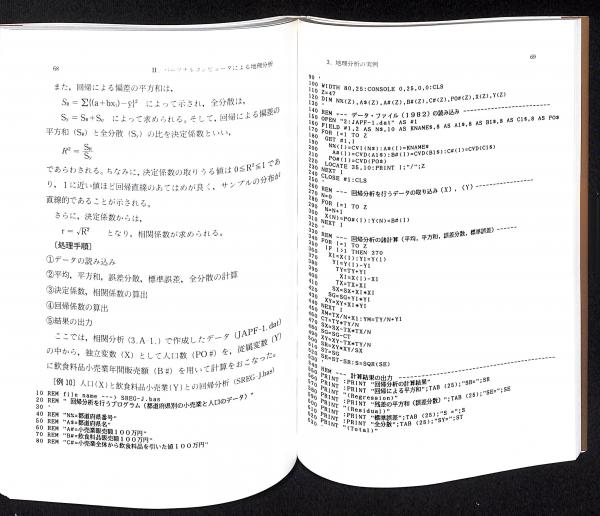 68
II パーソナルコンピュータによる地理分析
また，回帰による偏差の平方和は，
S_R = Σ{(a+bxᵢ)−ȳ}² によって示され，全分散は，
Sᵧ = S_R+Sₑ によって求められる。そして，回帰による偏差の
平方和（S_R）と全分散（Sᵧ）の比を決定係数といい，
R² = S_R/Sᵧ
であらわされる。ちなみに，決定係数の取りうる値は0≦R²≦1であ
り，1に近い値ほど回帰直線のあてはめが良く，サンプルの分布が
直線的であることが示される。
さらに，決定係数からは，
r = √R² となり，相関係数が求められる。
〔処理手順〕
①データの読み込み
②平均，平方和，誤差分散，標準誤差，全分散の計算
③決定係数，相関係数の算出
④回帰係数の算出
⑤結果の出力
ここでは，相関分析（3.A-1.）で作成したデータ（JAPF-1.dat）
の中から，独立変数（X）として人口数（PO#）を，従属変数（Y）
に飲食料品小売業年間販売額（B#）を用いて計算をおこなった。
〔例10〕人口(X)と飲食料品小売業(Y)との回帰分析（SREG-J.bas）
10 REM file name ---> SREG-J.bas
20 REM " 回帰分析を行うプログラム（都道府県別の小売業と人口のデータ）"
30 '
40 REM "NN=都道府県番号"
50 REM "A$=都道府県名"
60 REM "A#=小売業販売額100万円"
70 REM "B#=飲食料品販売額100万円"
80 REM "C#=小売業全体から飲食料品を引いた値100万円"
3. 地理分析の実例
69
90 '
100 WIDTH 80,25:CONSOLE 0,25,0,0:CLS
110 Z=47
120 DIM NN(Z),A$(Z),A#(Z),B#(Z),C#(Z),PO#(Z),X(Z),Y(Z)
130 '
140 REM --- データ・ファイル（1982）の読み込み
150 OPEN "2:JAPF-1.dat" AS #1
160 FIELD #1,2 AS N$,10 AS KNAME$,8 AS A1$,8 AS B1$,8 AS C1$,8 AS PO$
170 FOR I=1 TO Z
180 GET #1,I
190 NN(I)=CVI(N$):A$(I)=KNAME$
200 A#(I)=CVD(A1$):B#(I)=CVD(B1$):C#(I)=CVD(C1$)
210 PO#(I)=CVD(PO$)
220 LOCATE 35,10:PRINT I;"/";Z
230 NEXT I
240 CLOSE #1:CLS
260 REM --- 回帰分析を行うデータの取り込み（X），（Y）
270 N=0
280 FOR I=1 TO Z
290 N=N+1
300 X(N)=PO#(I):Y(N)=B#(I)
310 NEXT I
REM --- 回帰分析の諸計算（平均，平方和，誤差分散，標準誤差）
FOR I=1 TO Z
X1=X(1):Y1=Y(1)
YI=Y(I)-Y1
TY=TY+YI
XI=X(I)-X1
TX=TX+XI
SX=SX+XI*XI
SG=SG+YI*YI
XY=XY+XI*YI
NEXT I
XM=TX/N+X1:YM=TY/N+Y1
CT=TY*TY/N
SX=SX-TX*TX/N
SG=SG-CT
XY=XY-TX*TY/N
SR=XY*XY/SX
ST=SG
SE=ST-SR:S=SQR(SE)
REM --- 計算結果の出力
PRINT :PRINT "回帰分析の計算結果"
PRINT :PRINT "回帰による平方和";TAB (25);"SR=";SR
PRINT "(Regression)"
PRINT :PRINT "残差の平方和（誤差分散）";TAB (25);"SE=";SE
PRINT "(Residual)"
PRINT :PRINT "標準誤差";TAB (25);"S =";S
PRINT :PRINT "全分散";TAB (25);"SY=";ST
PRINT "(Total)"